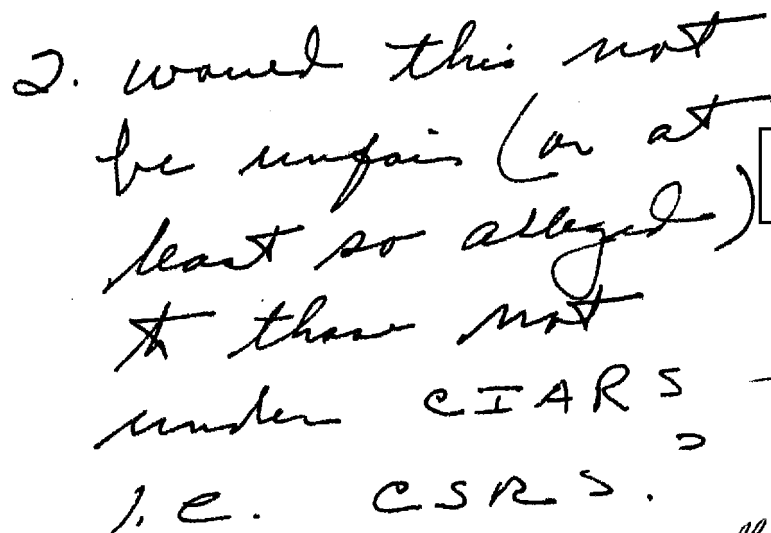 2. would this not
be unfair (or at
least so alleged)
to those not
under CIARS -
i.e. CSRS.?